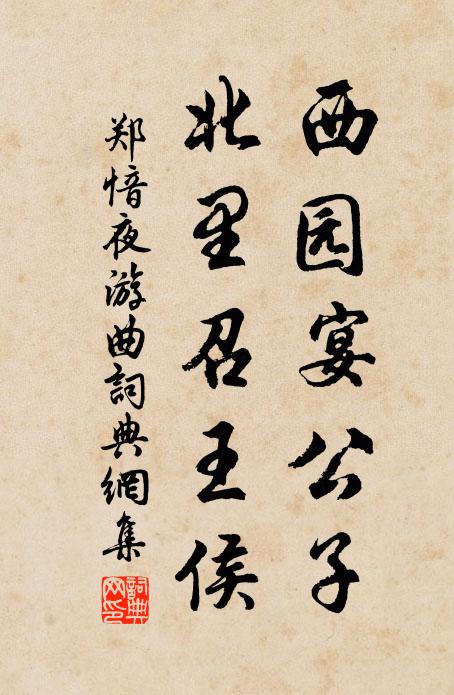 西园宴公子
北里召王侯
郑愔夜游曲詞典網集
詞典网印